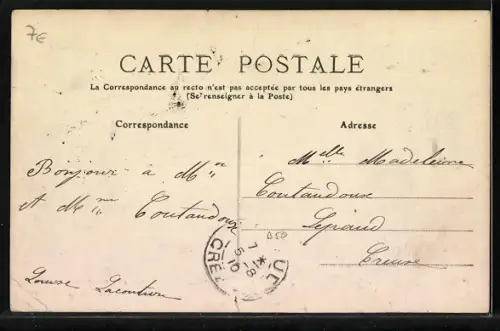 7€
CARTE POSTALE
La Correspondance au recto n'est pas acceptée par tous les pays étrangers
(Se renseigner à la Poste)
Correspondance
Adresse
Bonjour à Mr
et Mme Coutandoux
Louise
Melle Madeleine
Coutandoux
Lépaud
Creuse
B50
7 * -8
5 10